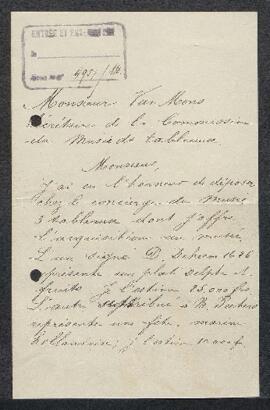 ENTRÉE ET
Monsieur Van Mons
Secrétaire de la Commission
du Musée de tableaux
Monsieur,
J'ai eu l'honneur de déposer
chez le concierge du Musée
3 tableaux dont j'offre
l'acquisition au musée.
L'un signé D. Deheem 1646
représente un plat delpht &
fruits je l'estime 25,000 frs
L'autre attribué à
représente une fête
hollandaise; je l'estime